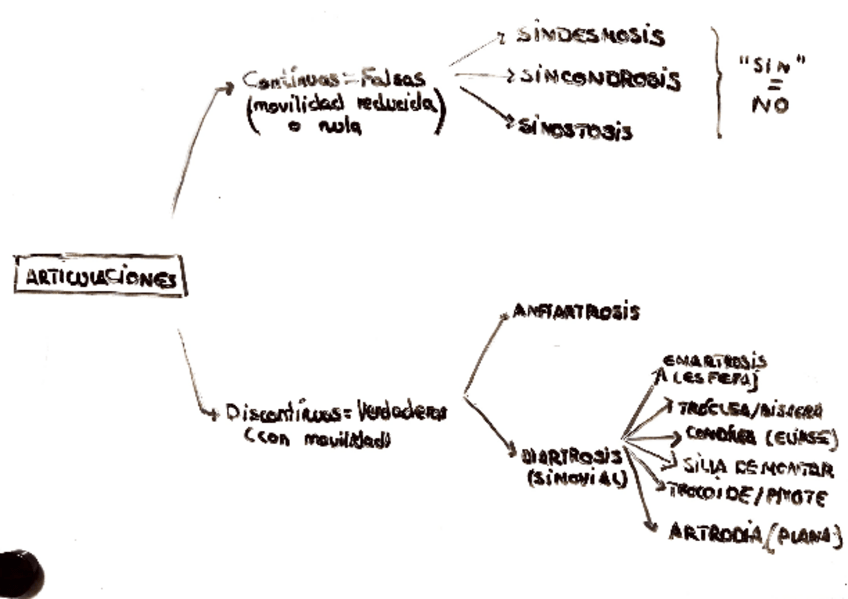 Contínuas = Falsas
(movilidad reducida
o nula)
SINDESMOSIS
SINCONDROSIS
SINOSTOSIS
"SIN"
=
NO
ARTICULACIONES
Discontínuas = Verdaderas
(con movilidad)
ANFIARTROSIS
DIARTROSIS
(SINOVIAL)
ENARTROSIS
(ESFERA)
TRÓCLEA/BISAGRA
CONDÍLEA (ELIPSE)
SILLA DE MONTAR
TROCOIDE/PIVOTE
ARTRODIA (PLANA)